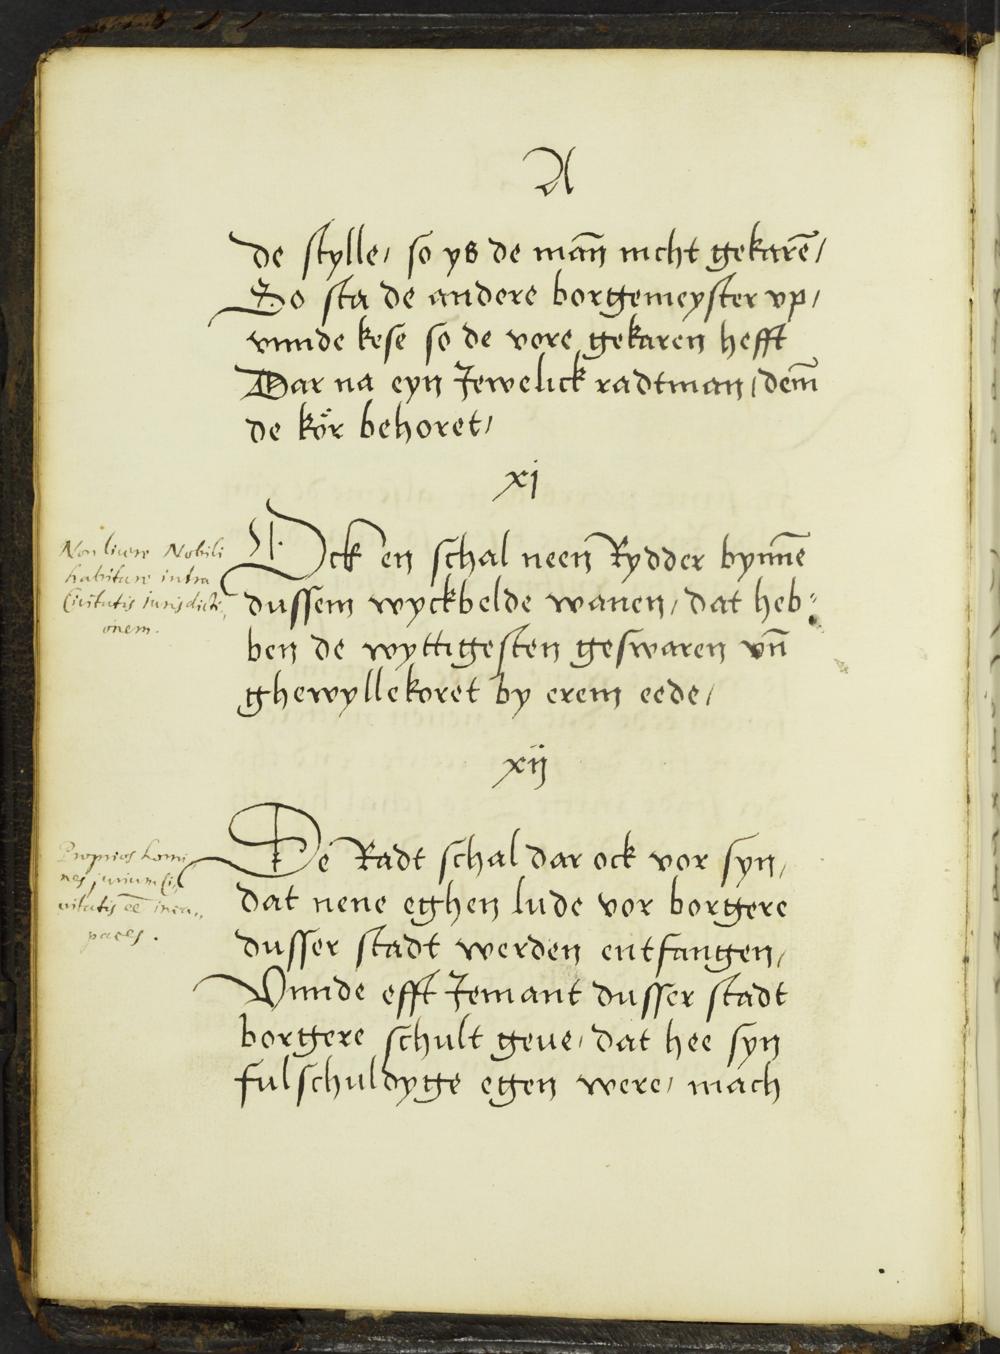 A
de stylle, so ys de man̄ nicht gekarē,
So sta de andere borgemeyster vp,
vnnde kese so de vore gekaren hefft
Dar na eyn Jewelick radtman, dem̄
de kör behoret,
xi
Ock en schal neen Rydder bynnē
dussem wyckbelde wanen, dat heb⸗
ben de wyttigesten geswaren vn̄
ghewyllekoret by erem eede,
xij
De Radt schal dar ock vor syn,
dat nene eghen lude vor borgere
dusser stadt werden entfangen,
Vnnde efft Jemant dusser stadt
borgere schult geue, dat hee syn
fulschuldyge egen were, mach
Non licere Nobili
habitare intra
Civitatis jurisdicti⸗
onem.
Proprios homi
nes jurium Ci⸗
vitatis eē inca⸗
paces.